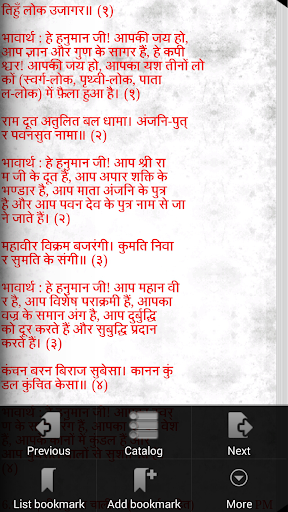 तिहुँ लोक उजागर॥ (१)
भावार्थ : हे हनुमान जी! आपकी जय हो,
आप ज्ञान और गुण के सागर हैं, हे कपी
श्वर! आपकी जय हो, आपका यश तीनो लो
कों (स्वर्ग-लोक, पृथ्वी-लोक, पाता
ल-लोक) में फ़ैला हुआ है। (१)
राम दूत अतुलित बल धामा। अंजनि-पुत्
र पवनसुत नामा॥ (२)
भावार्थ : हे हनुमान जी! आप श्री रा
म जी के दूत है, आप अपार शक्ति के
भण्डार है, आप माता अंजनि के पुत्र
है और आप पवन देव के पुत्र नाम से जा
ने जाते हैं। (२)
महावीर विक्रम बजरंगी। कुमति निवा
र सुमति के संगी॥ (३)
भावार्थ : हे हनुमान जी! आप महान वी
र है, आप विशेष पराक्रमी हैं, आपका
वज्र के समान अंग है, आप दुर्बुद्धि
को दूर करते हैं और सुबुद्धि प्रदान
करते हैं। (३)
कंचन बरन बिराज सुबेसा। कानन कुं
डल कुंचित केसा॥ (४)
भावार्थ : हे हनुमान जी!
Previous
Catalog
Next
List bookmark
Add bookmark
More